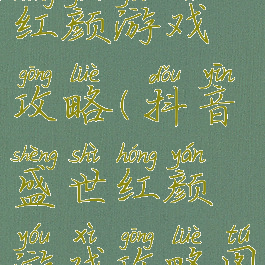 红颜游戏
gōng lüè dǒu yīn
攻略(抖音
shèng shì hóng yán
盛世红颜
yóu xì gōng lüè tú
游戏攻略图